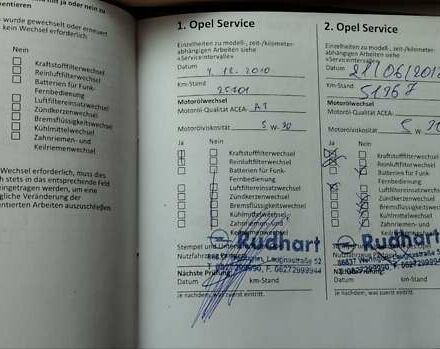 mit ja oder nein zu
entieren
wurde gewechselt oder erneuert
kein Wechsel erforderlich
Nein
Kraftstofffilterwechsel
Reinluftfilterwechsel
Batterien für Funk-
Fernbedienung
Luftfiltereinsatzwechsel
Zündkerzenwechsel
Bremsflüssigkeitswechsel
Kühlmittelwechsel
Zahnriemen- und
Keilriemenwechsel
Wechsel erforderlich, muss dies
stets in das entsprechende Feld
eingetragen werden, um eine
gliche Veränderung der
entierten Arbeiten auszuschließen
1. Opel Service
Einzelheiten zu modell-, zeit-/kilometer-
abhängigen Arbeiten siehe
«Serviceintervalle»
Datum 4.12.2010
Km-Stand
Motorölwechsel
Motoröl-Qualität ACEA: A3
Motorölviskosität 5 W-30
Ja Nein
Kraftstofffilterwechsel
Reinluftfilterwechsel
Batterien für Funk-
Fernbedienung
Luftfiltereinsatzwechsel
Zündkerzenwechsel
Bremsflüssigkeitswechsel
Kühlmittelwechsel
Zahnriemen- und
Keilriemenwechsel
Stempel und
Rudhart
Nutzfahrzeug
Nächste Prüfung
Datum km-Stand
Je nachdem, was zuerst eintrifft.
2. Opel Service
Einzelheiten zu modell-, zeit-/kilometer-
abhängigen Arbeiten siehe
«Serviceintervalle»
Datum
Km-Stand 51967
Motorölwechsel
Motoröl-Qualität ACEA:
Motorölviskosität 5
Ja Nein
Kraftstofffilterwechsel
Reinluftfilterwechsel
Batterien für Funk-
Fernbedienung
Luftfiltereinsatzwechsel
Zündkerzenwechsel
Bremsflüssigkeitswechsel
Kühlmittelwechsel
Zahnriemen- und
Keilriemenwechsel
Rudhart
Datum km-Stand
Je nachdem, was zuerst eintrifft.